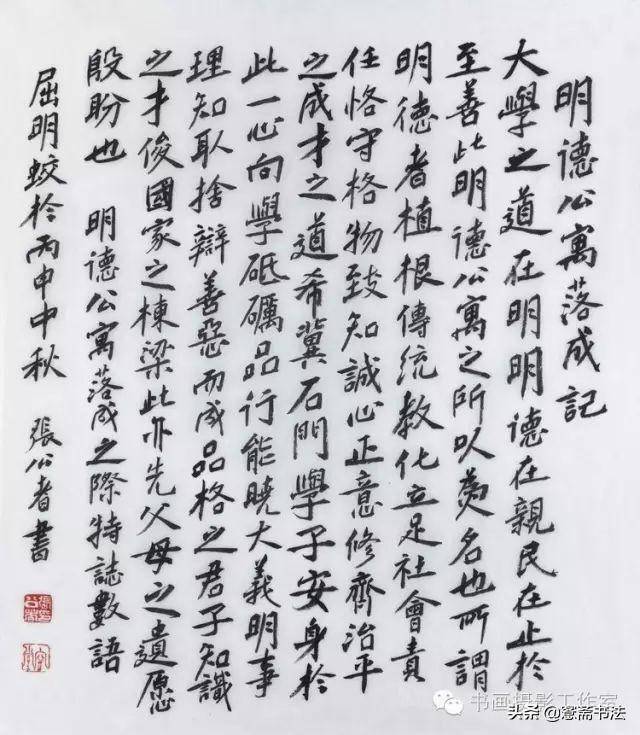 明德公寓落成記
大學之道在明明德在親民在止於
至善此明德公寓之所以美名也所謂
明德者植根傳統教化立足社會責
任恪守格物致知誠心正意修齊治平
之成才之道希冀石門學子安身於
此一心向學砥礪品行能曉大義明事
理知取捨辯善惡而成品格之君子知識
之才俊國家之棟梁此亦先父母之遺愿
殷盼也 明德公寓落成之際特誌數語
屈明蛟於丙申中秋 張公者書
书画摄影工作室
头条@憲斋书法